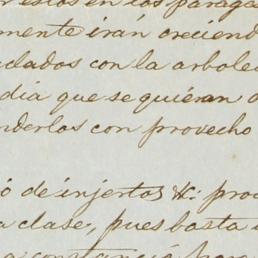 estos en los parag
mente irán creciend
dados con la arbole
dia que se quieran
nderlos con provecho
ó de injertos &c: pro
a clase, pues basta
a constancia